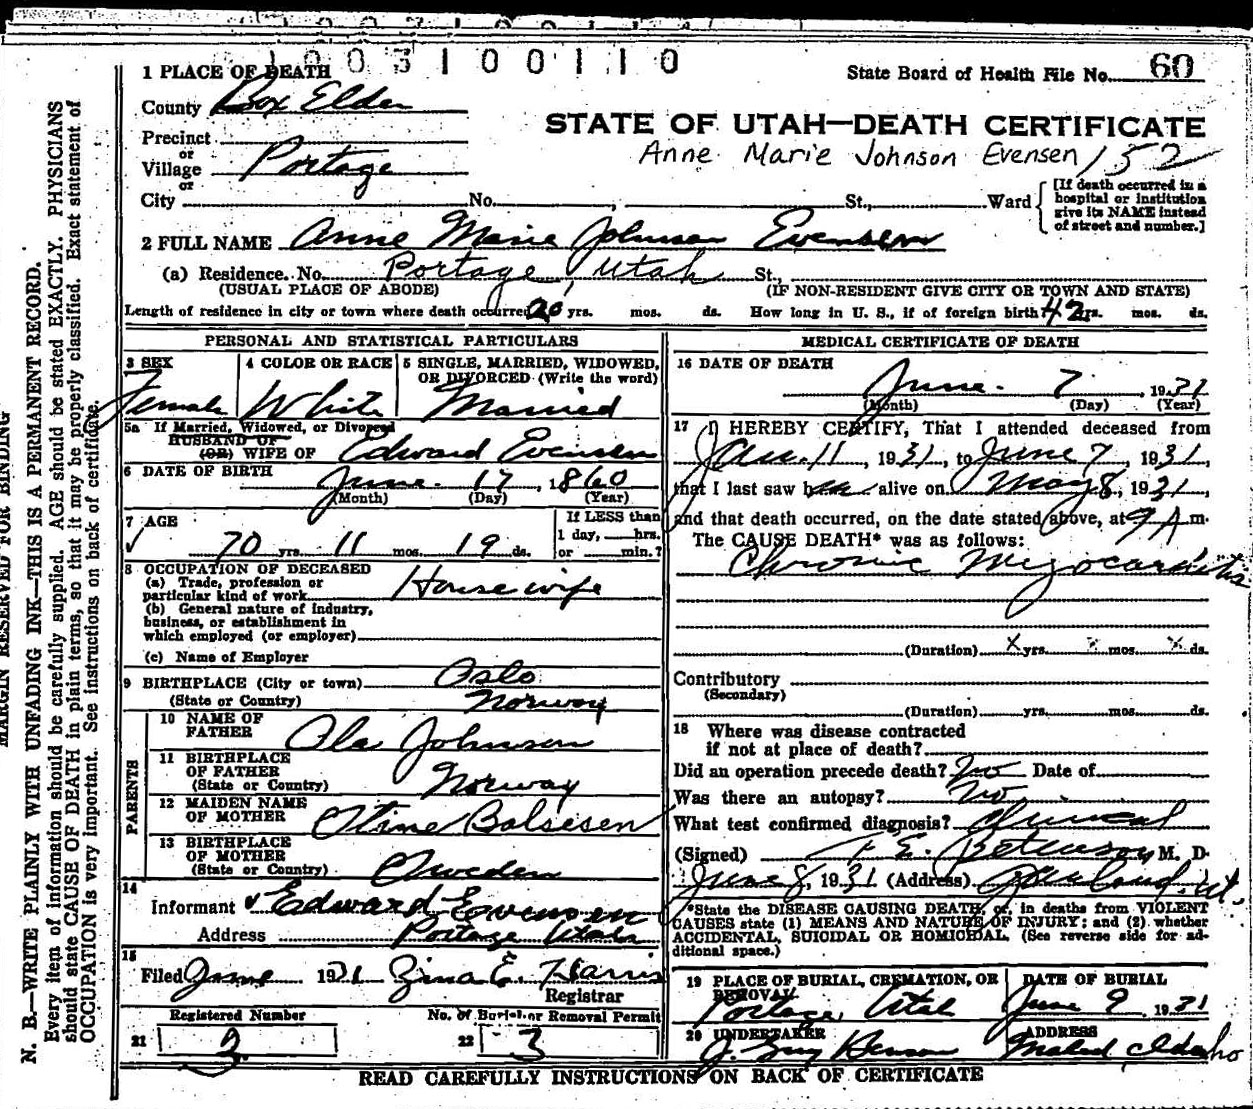 1003100110
1 PLACE OF DEATH
State Board of Health File No. 60
County Box Elder
STATE OF UTAH—DEATH CERTIFICATE
Precinct
or
Anne Marie Johnson Evensen 152
Village Portage
or
City No. St., Ward
[If death occurred in a
hospital or institution
give its NAME instead
of street and number.]
2 FULL NAME Anne Marie Johnson Evensen
(a) Residence. No. Portage, Utah St.,
(USUAL PLACE OF ABODE) (IF NON-RESIDENT GIVE CITY OR TOWN AND STATE)
Length of residence in city or town where death occurred 20 yrs. mos. ds. How long in U. S., if of foreign birth 42 yrs. mos. ds.
PERSONAL AND STATISTICAL PARTICULARS
3 SEX
Female
4 COLOR OR RACE
White
5 SINGLE, MARRIED, WIDOWED,
OR DIVORCED (Write the word)
Married
5a If Married, Widowed, or Divorced
HUSBAND OF
(OR) WIFE OF Edward Evensen
6 DATE OF BIRTH June 17, 1860
(Month) (Day) (Year)
7 AGE
70 yrs. 11 mos. 19 ds.
If LESS than
1 day, hrs.
or min.?
8 OCCUPATION OF DECEASED
(a) Trade, profession or
particular kind of work Housewife
(b) General nature of industry,
business, or establishment in
which employed (or employer)
(c) Name of Employer
9 BIRTHPLACE (City or town) Oslo
(State or Country) Norway
PARENTS
10 NAME OF
FATHER Ole Johnson
11 BIRTHPLACE
OF FATHER
(State or Country) Norway
12 MAIDEN NAME
OF MOTHER Otine Bolsesen
13 BIRTHPLACE
OF MOTHER
(State or Country) Sweden
14
Informant Edward Evensen
Address Portage Utah
15
Filed June 1931 Zina E. Harris
Registrar
Registered Number No. of Burial or Removal Permit
21 2 22 3
MEDICAL CERTIFICATE OF DEATH
16 DATE OF DEATH
June 7, 1931
(Month) (Day) (Year)
17 I HEREBY CERTIFY, That I attended deceased from
Jan. 11, 1931, to June 7, 1931,
that I last saw her alive on May 8, 1931,
and that death occurred, on the date stated above, at 9 A m.
The CAUSE DEATH* was as follows:
Chronic Myocarditis
(Duration) x yrs. x mos. x ds.
Contributory
(Secondary)
(Duration) yrs. mos. ds.
18 Where was disease contracted
if not at place of death?
Did an operation precede death? No Date of
Was there an autopsy? No
What test confirmed diagnosis? Clinical
(Signed) E. M. D.
June 8, 1931 (Address) Garland, Ut.
*State the DISEASE CAUSING DEATH, or, in deaths from VIOLENT
CAUSES state (1) MEANS AND NATURE OF INJURY; and (2) whether
ACCIDENTAL, SUICIDAL OR HOMICIDAL. (See reverse side for ad-
ditional space.)
19 PLACE OF BURIAL, CREMATION, OR
REMOVAL
Portage, Utah
DATE OF BURIAL
June 9, 1931
20 UNDERTAKER
J. Guy Benson
ADDRESS
Malad, Idaho
READ CAREFULLY INSTRUCTIONS ON BACK OF CERTIFICATE
MARGIN RESERVED FOR BINDING
N. B.—WRITE PLAINLY WITH UNFADING INK—THIS IS A PERMANENT RECORD.
Every item of information should be carefully supplied. AGE should be stated EXACTLY. PHYSICIANS
should state CAUSE OF DEATH in plain terms, so that it may be properly classified. Exact statement of
OCCUPATION is very important. See instructions on back of certificate.